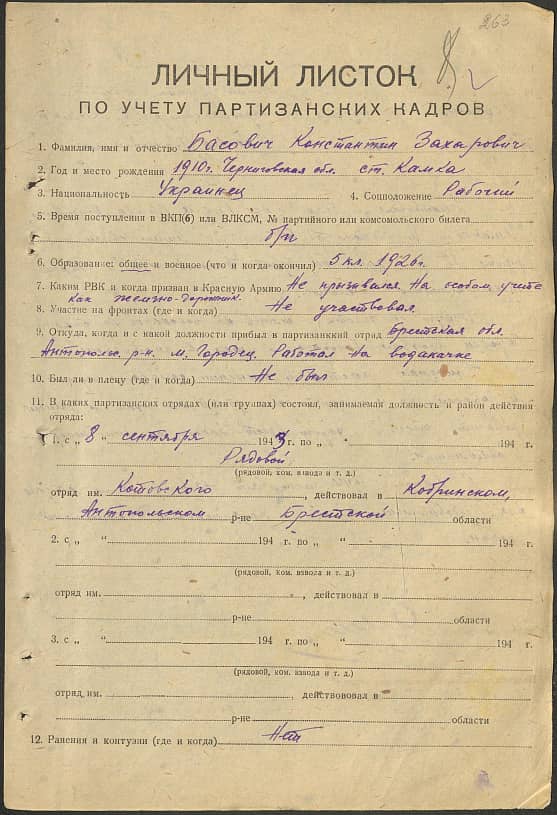 263
ЛИЧНЫЙ ЛИСТОК
ПО УЧЕТУ ПАРТИЗАНСКИХ КАДРОВ
1. Фамилия, имя и отчество Басович Константин Захарович
2. Год и место рождения 1910 г. Черниговская обл. ст. Камка
3. Национальность Украинец 4. Соцположение Рабочий
5. Время поступления в ВКП(б) или ВЛКСМ, № партийного или комсомольского билета
б/п
6. Образование: общее и военное (что и когда окончил) 5 кл. 1926 г.
7. Каким РВК и когда призван в Красную Армию Не призывался. На особом учете
как железно-дорожник.
8. Участие на фронтах (где и когда) Не участвовал
9. Откуда, когда и с какой должности прибыл в партизанкий отряд Брестская обл.
Антополь. р-н. м. Городец. Работал на водакачке
10. Был ли в плену (где и когда) Не был
11. В каких партизанских отрядах (или группах) состоял, занимаемая должность и район действия
отряда:
1. с „ 8 " сентября 1943 г. по „ " 194 г.
Рядовой
(рядовой, ком. взвода и т. д.)
отряд им. Котовского, действовал в Кобринском,
Антопольском р-не Брестской области
2. с „ " 194 г. по „ " 194 г.
(рядовой, ком. взвода и т. д.)
отряд им. , действовал в
р-не области
3. с „ " 194 г. по „ " 194 г.
(рядовой, ком. взвода и т. д.)
отряд, им. , действововал в
р-не области
12. Ранения и контузии (где и когда) Нет